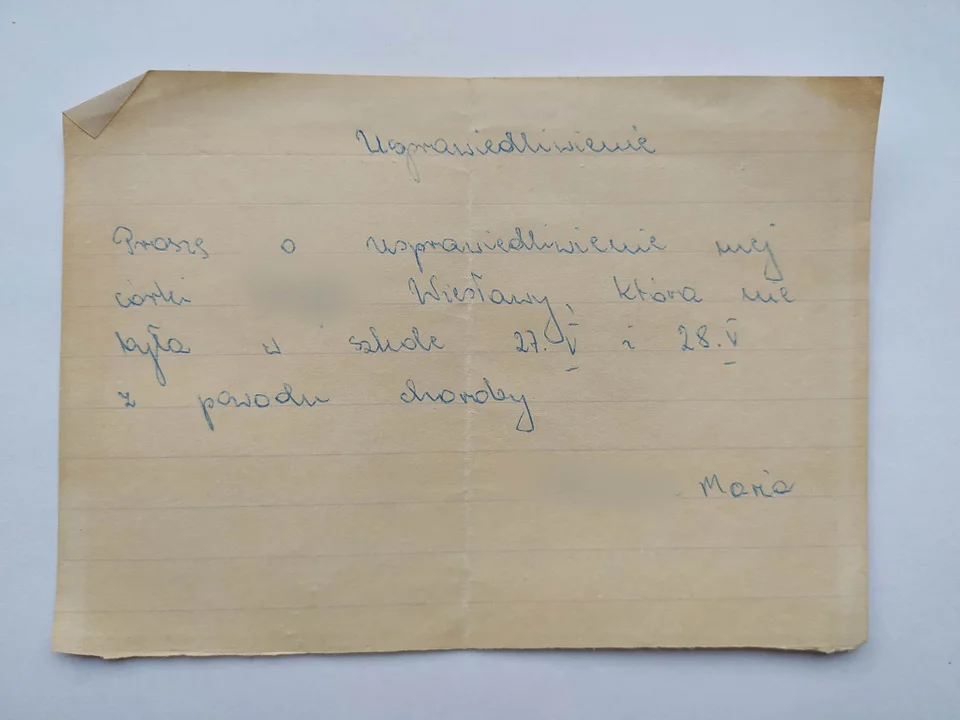 Usprawiedliwienie
Proszę o usprawiedliwienie mej
córki Wiesławy, która nie
była w szkole 27.V i 28.V
z powodu choroby
Maria